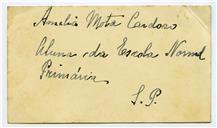 Amelia Mota Cardoso
Aluna da Escola Normal
Primária
S. P.